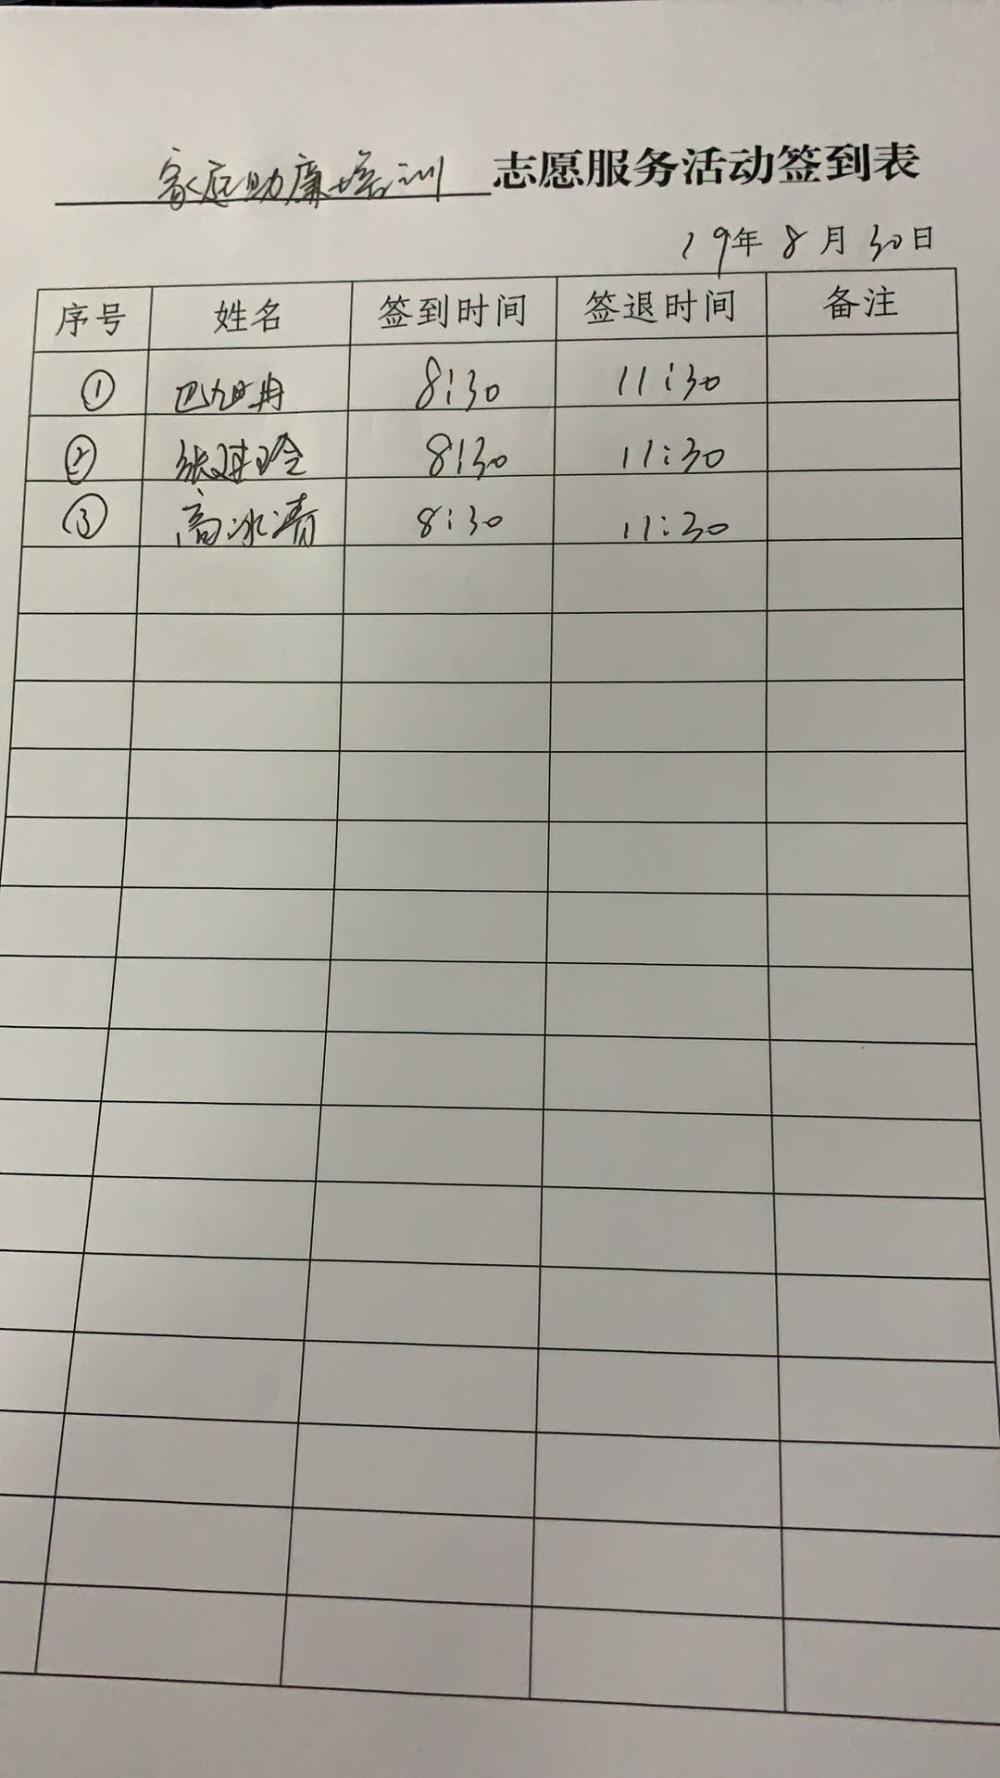 家庭助廉培训 志愿服务活动签到表
19年8月30日
序号 姓名 签到时间 签退时间 备注
① 8:30 11:30
② 张 玲 8:30 11:30
③ 高冰清 8:30 11:30